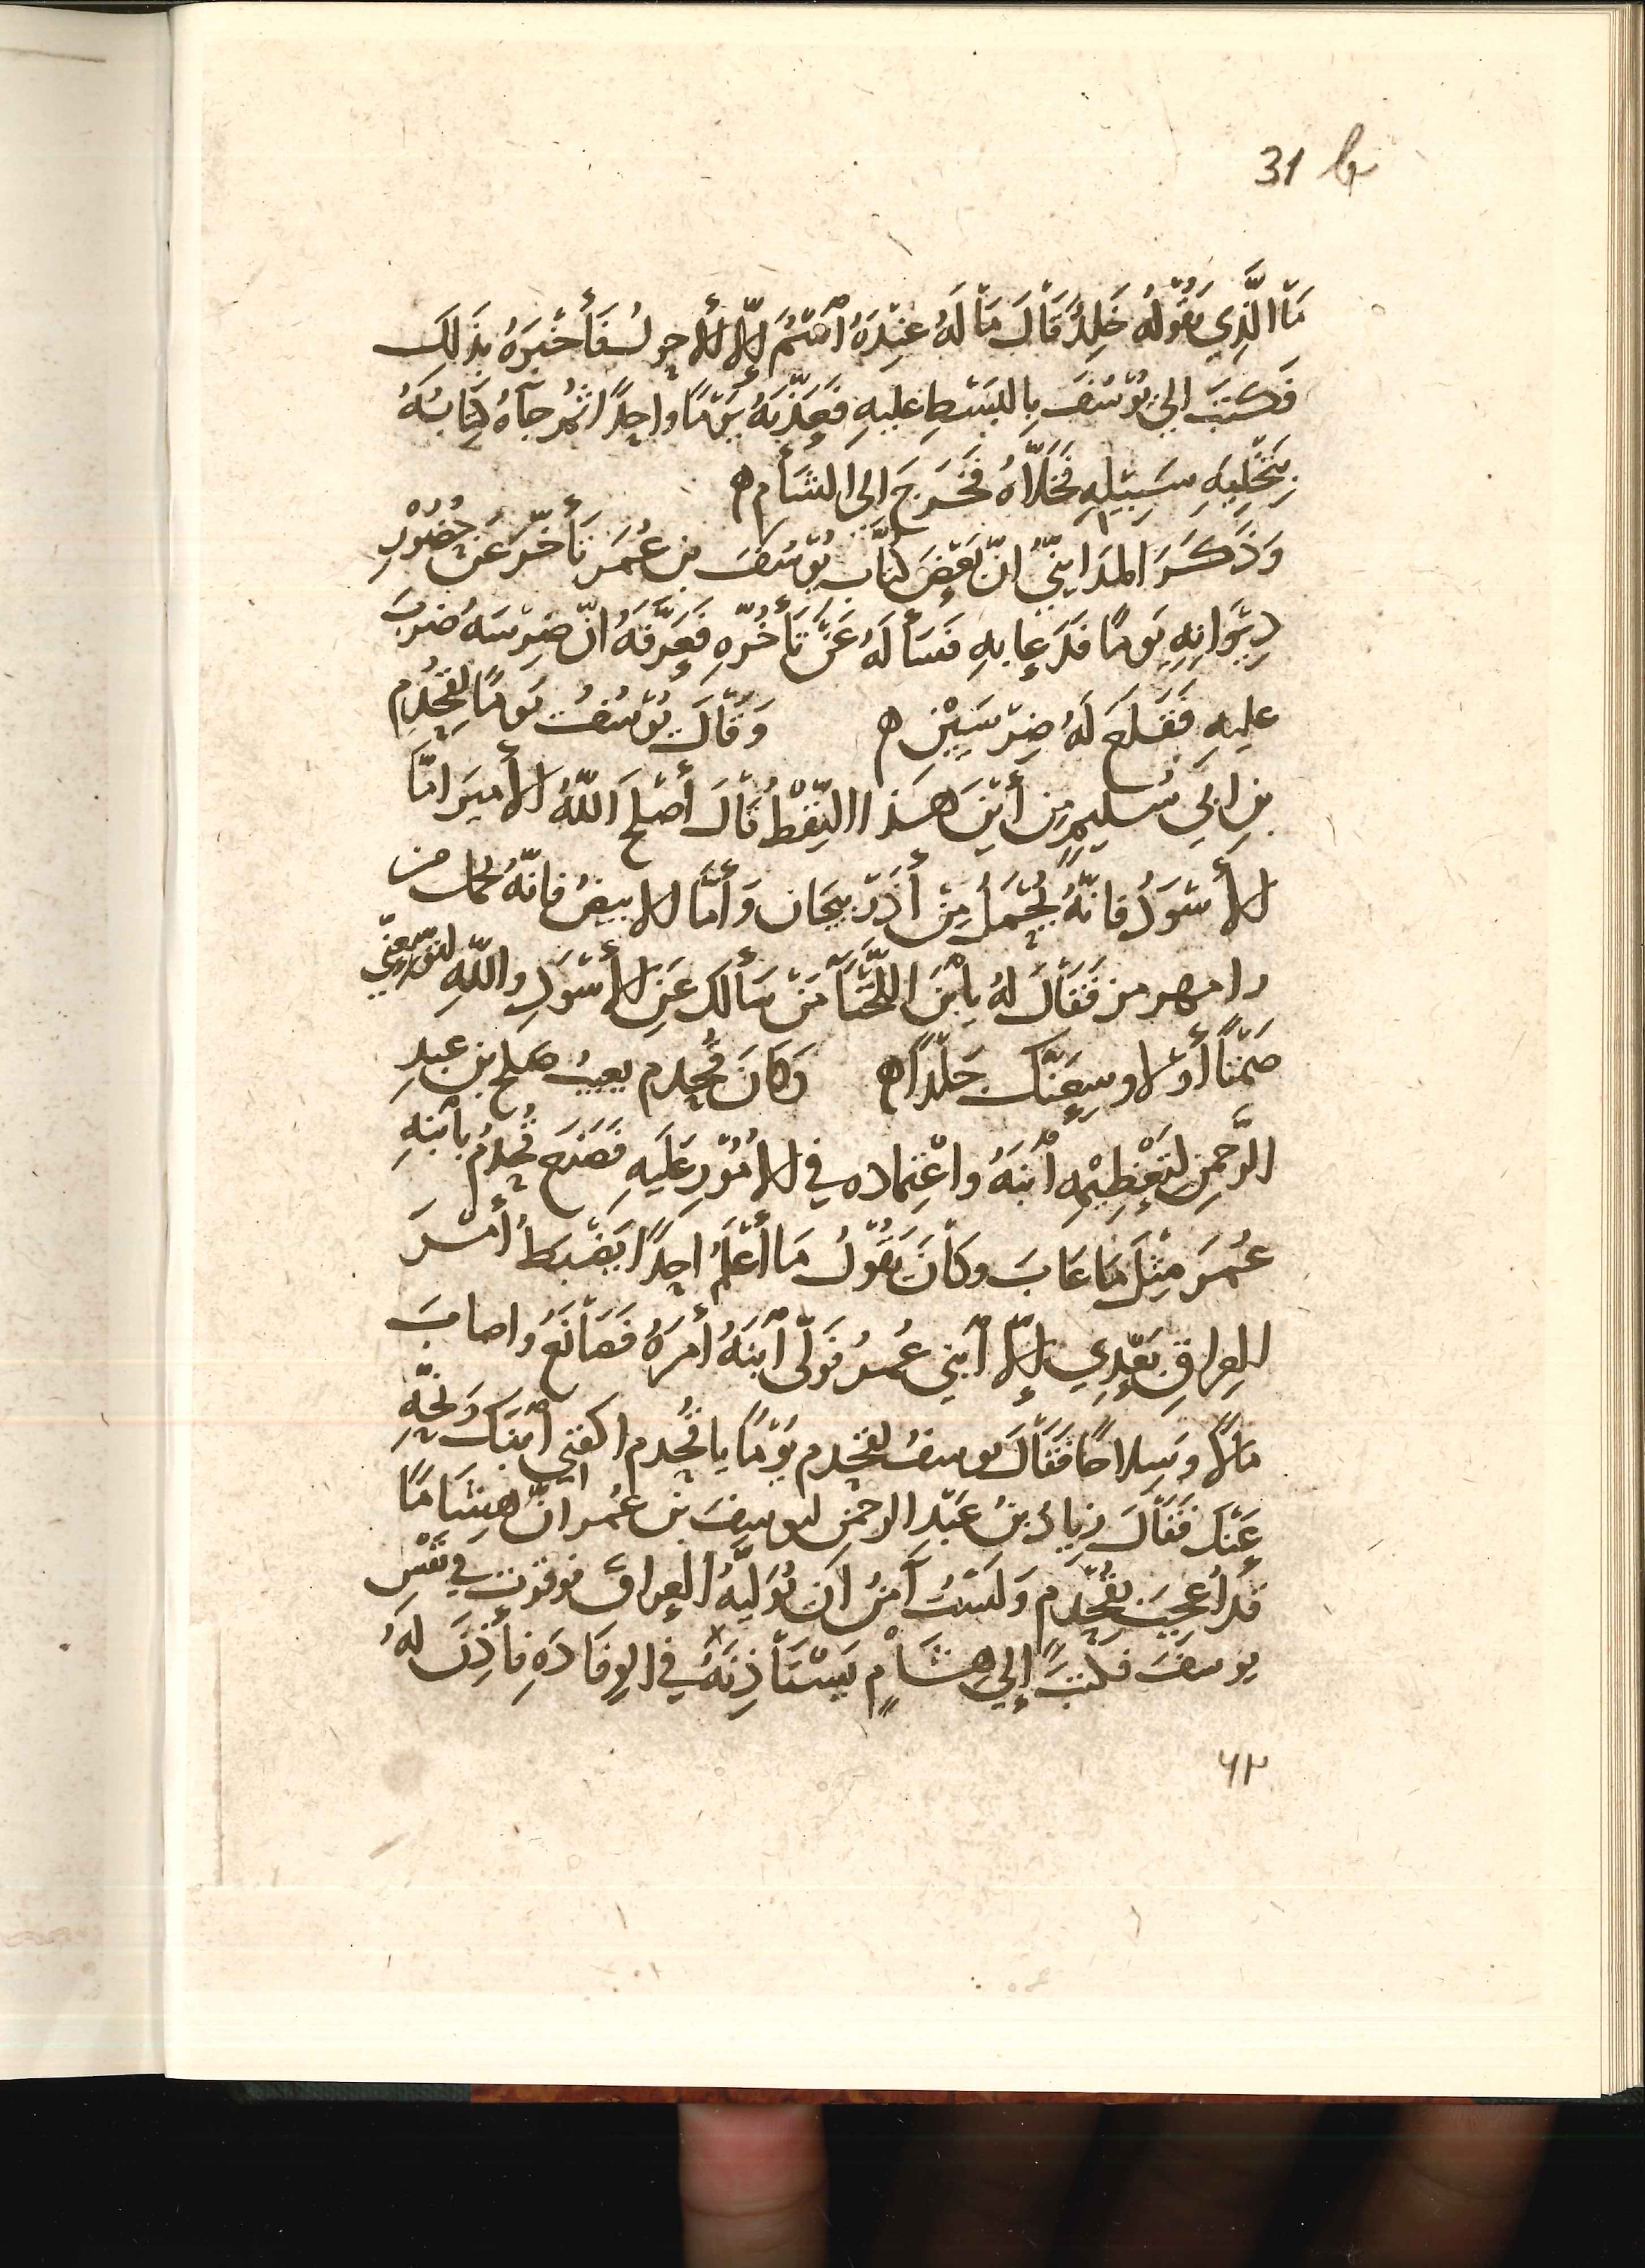 31 b
مَا الَّذِي يَقُولُهُ خَلِدٌ قَالَ مَا لَهُ عِنْدَهُ آسْمٌ إِلَّا الأحول فَأَخْبَرَهُ بِذَلِكَ
فَكَتَبَ الى يُوْسُفَ بِالبَسْطِ عليهِ فَعَذَّبَهُ يَوْمًا واحِدًا ثُمّ جَآهُ كِتَابُهُ
بِتَخْلِيَهِ سَبِيْلِهِ فَخَلّاهُ فَخَرَجَ الى الشَأْمِ ه
وَذَكَرَ المَدَاينِيُّ انّ بَعْضَ كُتَّابِ يُوْسُفَ بن عُمَرَ تَأَخَّرَ عَن حُضُوْرِ
دِيْوَانِهِ يَومًا فَدَعا بهِ فَسَأَلَهُ عَنْ تَأَخُّرِهِ فَعَرَّفَهُ انّ ضِرْسَهُ ضَرَبَ
عليهِ فَقَلَعَ لَهُ ضِرْسَيْنِ ه وَقَالَ يُوْسُفُ يَومًا لِقَحْذَمِ
بنِ ابي سُلَيمٍ مِن أَيْنَ هَذا النِّفْطُ قَالَ أَصْلَحَ اللّهُ الأَميرَ امّا
الأَسْوَدُ فانّهُ يُحْمَلُ مِنْ أَذَرْبيجَان وَأَمَّا الابيضُ فانّهُ يُحمل من
رامهرمز فَقَالَ لهُ يابْنَ اللَّخْنَآ مَنْ سَأَلَك عَنِ الأَسْوَدِ واللّهِ
أَوْ لاوسِعَنَّك جَلْدًا ه وَكَانَ قَحْذم يعيبُ صَلح بن عبدِ
الرَّحمنِ لتَعْظِيْمِهِ آبنَهُ واعْتِمادِه في الامُوْرِ عَلَيهِ فَصَنَعَ قَحْذمُ بآبنِهِ
عُمَرَ مِثْلَ مَا عَابَ وكَانَ يَقُوْلُ مَا أَعْلَمُ احدًا يَضْبطُ أَمْرَ
العِراقِ بَعْدِي إلّا آبني عُمرُ فَوَلّى آبنَهُ أَمْرَهُ فَصَانَعَ واصابَ
مَالًا وَسِلاحًا فَقَالَ يوسفُ لقحذم يَوْمًا يا قَحْذم اكفني آبْنَكَ وَنَحِّهِ
عَنْكَ فَقَالَ زيادُ بنُ عَبْدِ الرحمنِ ليوسِفَ بنِ عُمر انّ هِشَامًا
قَدْ اُعْجِبَ بقَحْذَم وَلَسْتُ آمَنُ انْ يُوَلّيَهُ العراقَ فوقرت في نَفْسِ
يوسفَ فكَتَبَ إلى هشَامٍ يَسْتَأْذِنَهُ في الوِفَادَهِ فأَذِنَ لهُ
٦٢